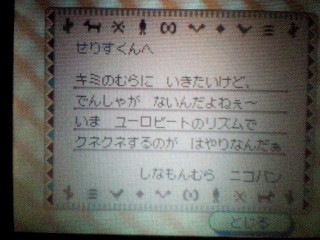 せりすくんへ
キミのむらに いきたいけど、
でんしゃが ないんだよねぇ～
いま ユーロビートのリズムで
クネクネするのが はやりなんだぁ
しなもんむら ニコバン
とじる